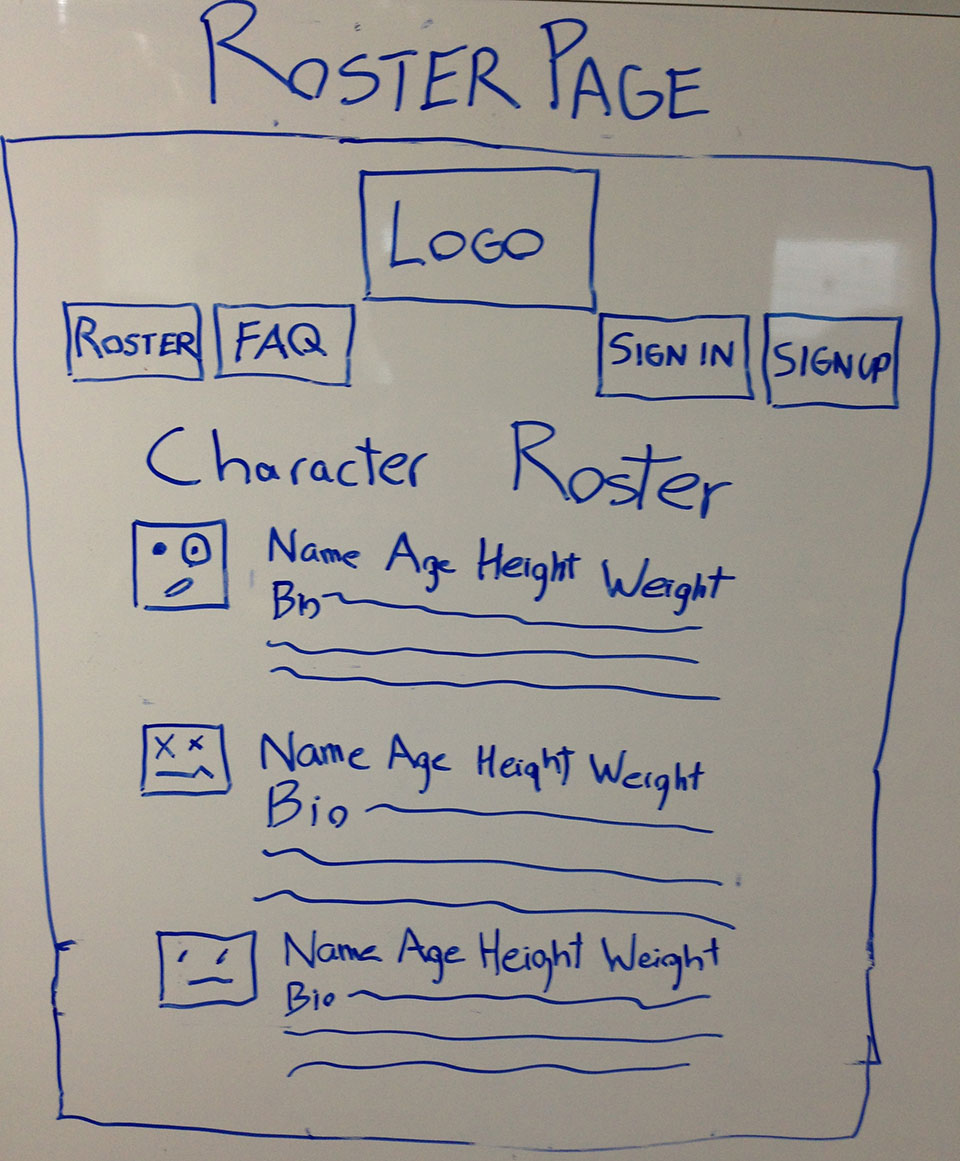 ROSTER PAGE
LOGO
ROSTER FAQ SIGN IN SIGN UP
Character Roster
Name Age Height Weight
Bio
Name Age Height Weight
Bio
Name Age Height Weight
Bio